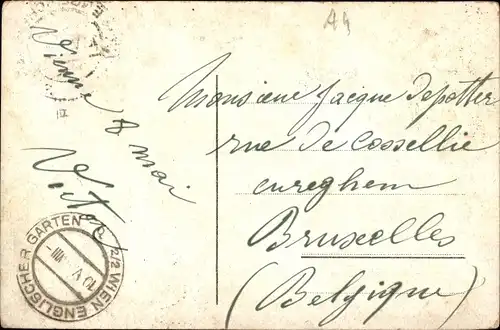 A4
Vienne 8 mai
Victor
Monsieur Jacque depotter
rue de Cossellie
cureghem
Bruxelles
(Belgique)
2/2 WIEN ENGLISCHER GARTEN